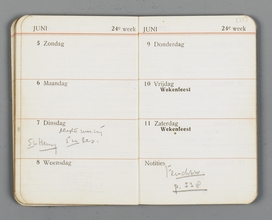 JUNI 24e week
5 Zondag
6 Maandag
7 Dinsdag
8 Woensdag
JUNI 24e week
9 Donderdag
10 Vrijdag
Wekenfeest
11 Zaterdag
Wekenfeest
Notities
p. 228